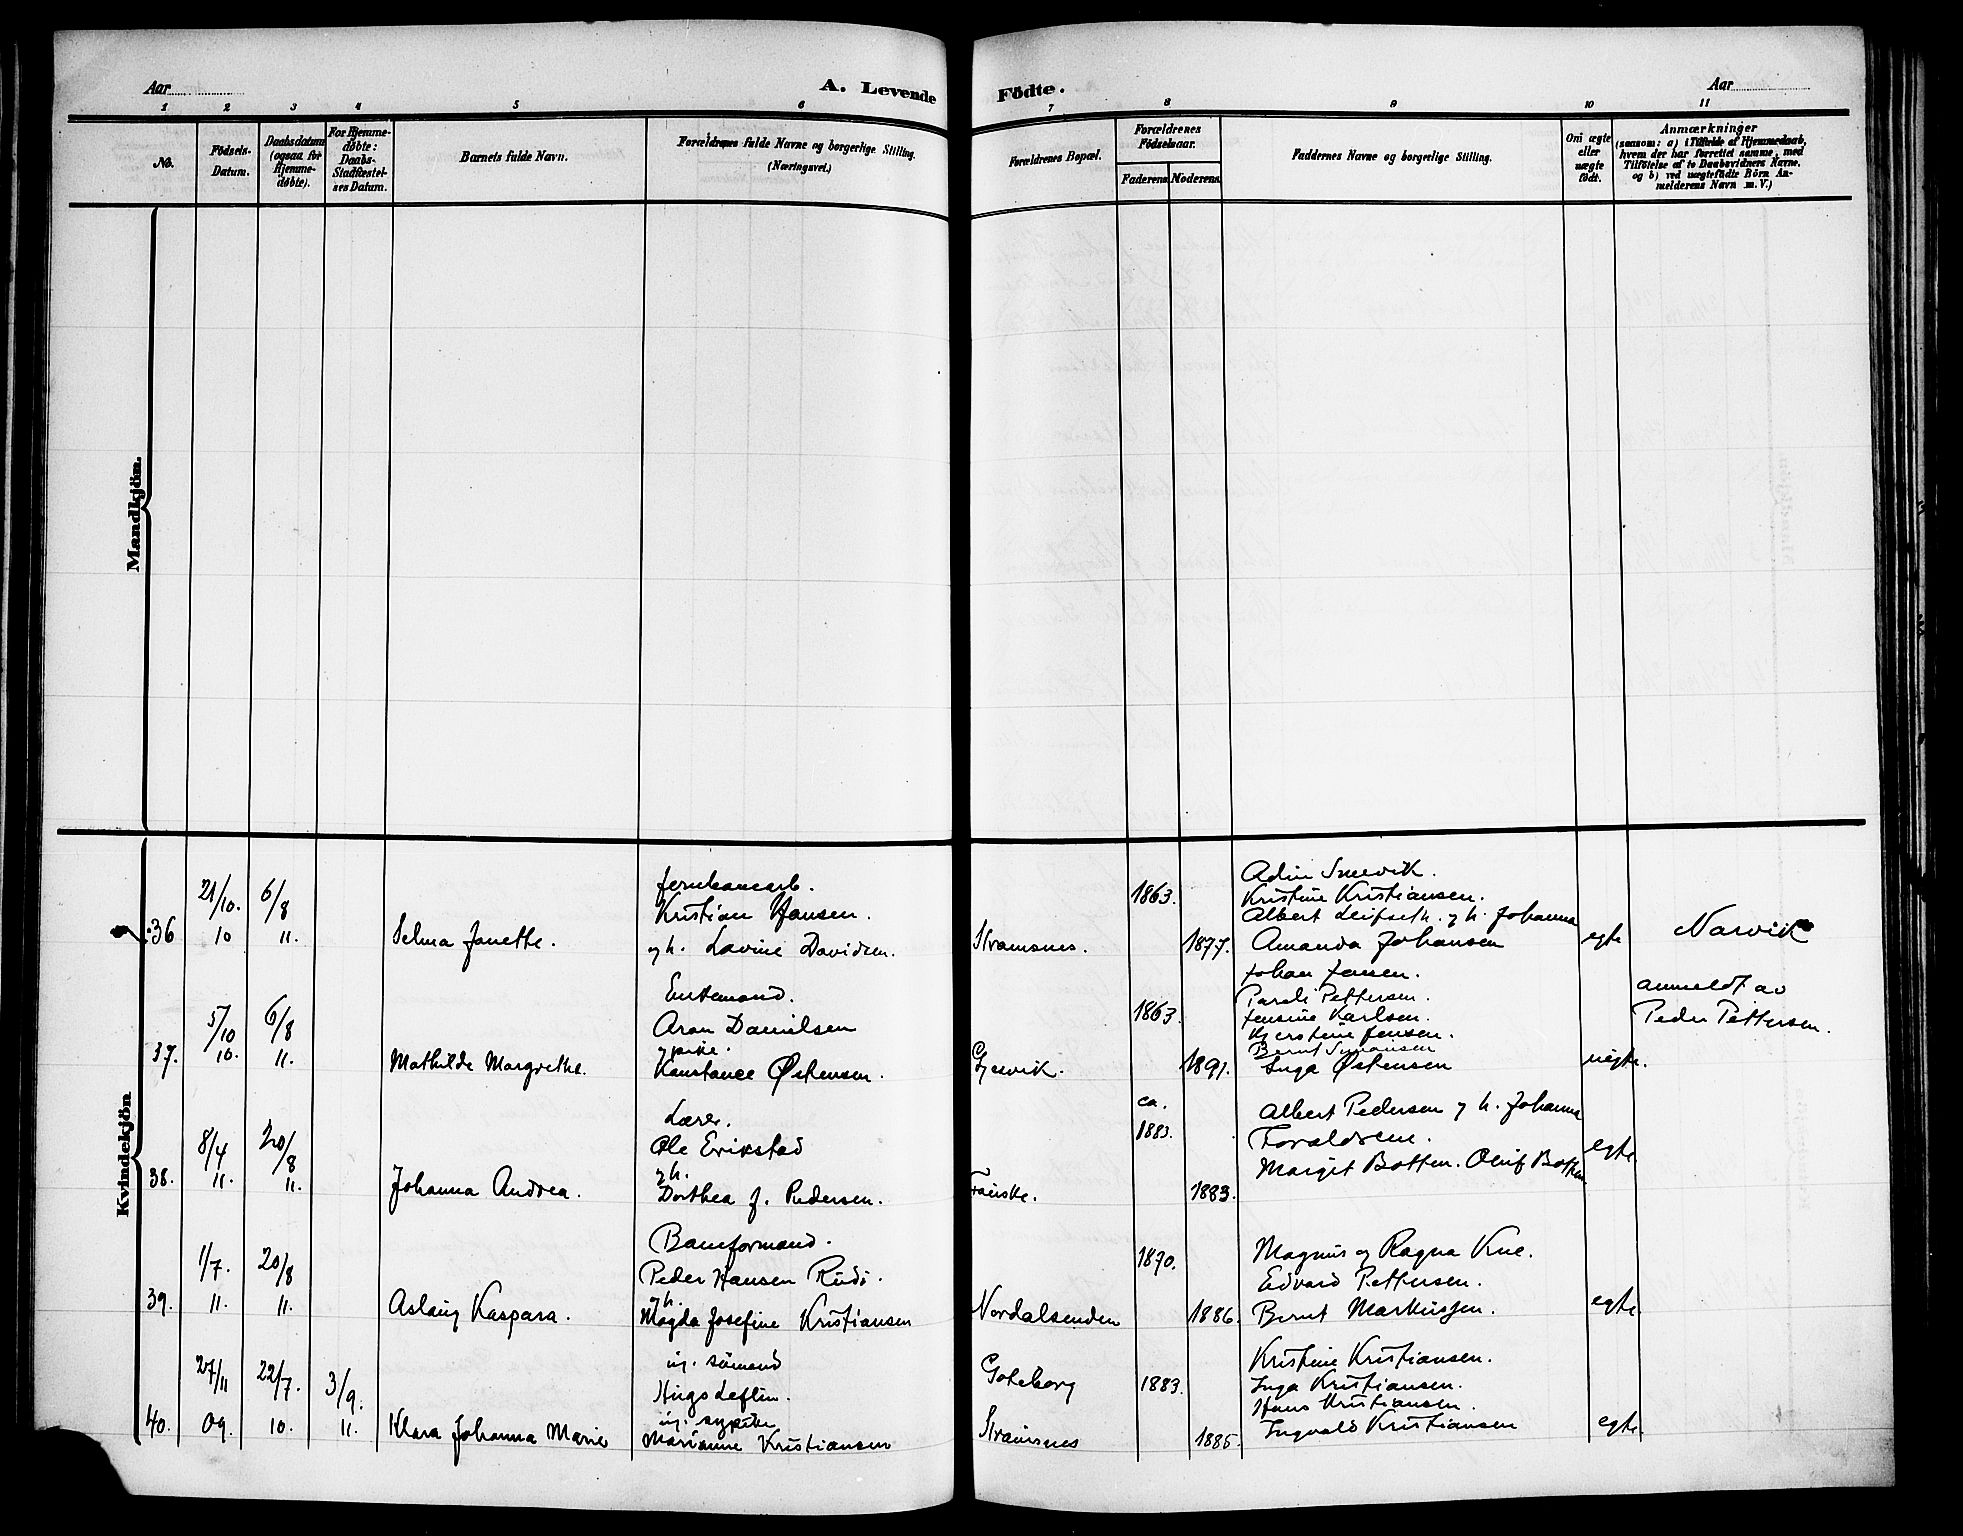 Aar
A. Levende
Födte.
Aar
1 2 3 4 5 6 7 8 9 10 11
No.
Födsels-
Datum.
Daabsdatum
(ogsaa for
Hjemme-
døbte).
For Hjemme-
døbte:
Daabs-
Stadfæstel-
ses Datum.
Barnets fulde Navn.
Forældrenes fulde Navne og borgerlige Stilling.
(Næringsvei.)
Forældrenes Bopæl.
Forældrenes
Fødselsaar.
Faderens
Moderens
Faddernes Navne og borgerlige Stilling.
Om ægte
eller
uægte
født.
Anmærkninger
(saasom: a) i Tilfælde af Hjemmedaab,
hvem der har forrettet samme, med
Tilföielse af to Daabsvidners Navne,
og b) ved uægtefödte Börn An-
melderens Navn m. V.)
Mandkjön.
Kvindekjön
36
21/10.
10
6/8
11.
Selma Janette.
Kristian Hansen.
og h. Lavine Davidsen.
Stramsnes.
1863.
1877.
Kristine Kristiansen.
Albert Leifseth. og h. Johanna
Amanda Johansen
Johan Jensen.
egte
Narvik
37.
5/10
10.
6/8
11.
Mathilde Margrethe.
Enkemand.
Aron Danielsen
og pike.
Konstance Østensen.
Gjesvik.
1863.
1891.
Pettersen.
Jensine Karlsen.
Kjerstine Jensen.
Bernt
Inga Østensen
uegte.
anmeldt av
Peder Pettersen.
38.
8/4
11.
20/8
11.
Johanna Andrea.
Lærer.
Ole Erikstad
og h.
Dorthea f. Pedersen.
Fauske.
ca.
1883.
1883.
Albert Pedersen og h. Johanna
Forældrene.
Margit Botten. Oluf Botten
egte
39.
1/7.
11.
20/8
11.
Aslaug Kaspara.
Baneformand.
Peder Hansen Rudi.
og h.
Magda Josefine Kristiansen
Nordalsenden
1870.
1886.
Magnus og Ragna Kne.
Edvard Pettersen.
Bernt Markussen.
egte
40.
27/11
09.
22/7.
10.
3/9.
11.
Klara Johanna Marie
ug. sömand
Hugo Leflin.
ug. sypike
Marianne Kristiansen
Goteborg
Stramsnes
1883.
1885.
Kristine Kristiansen.
Inga Kristiansen.
Hans Kristiansen.
Ingvald Kristiansen
egte